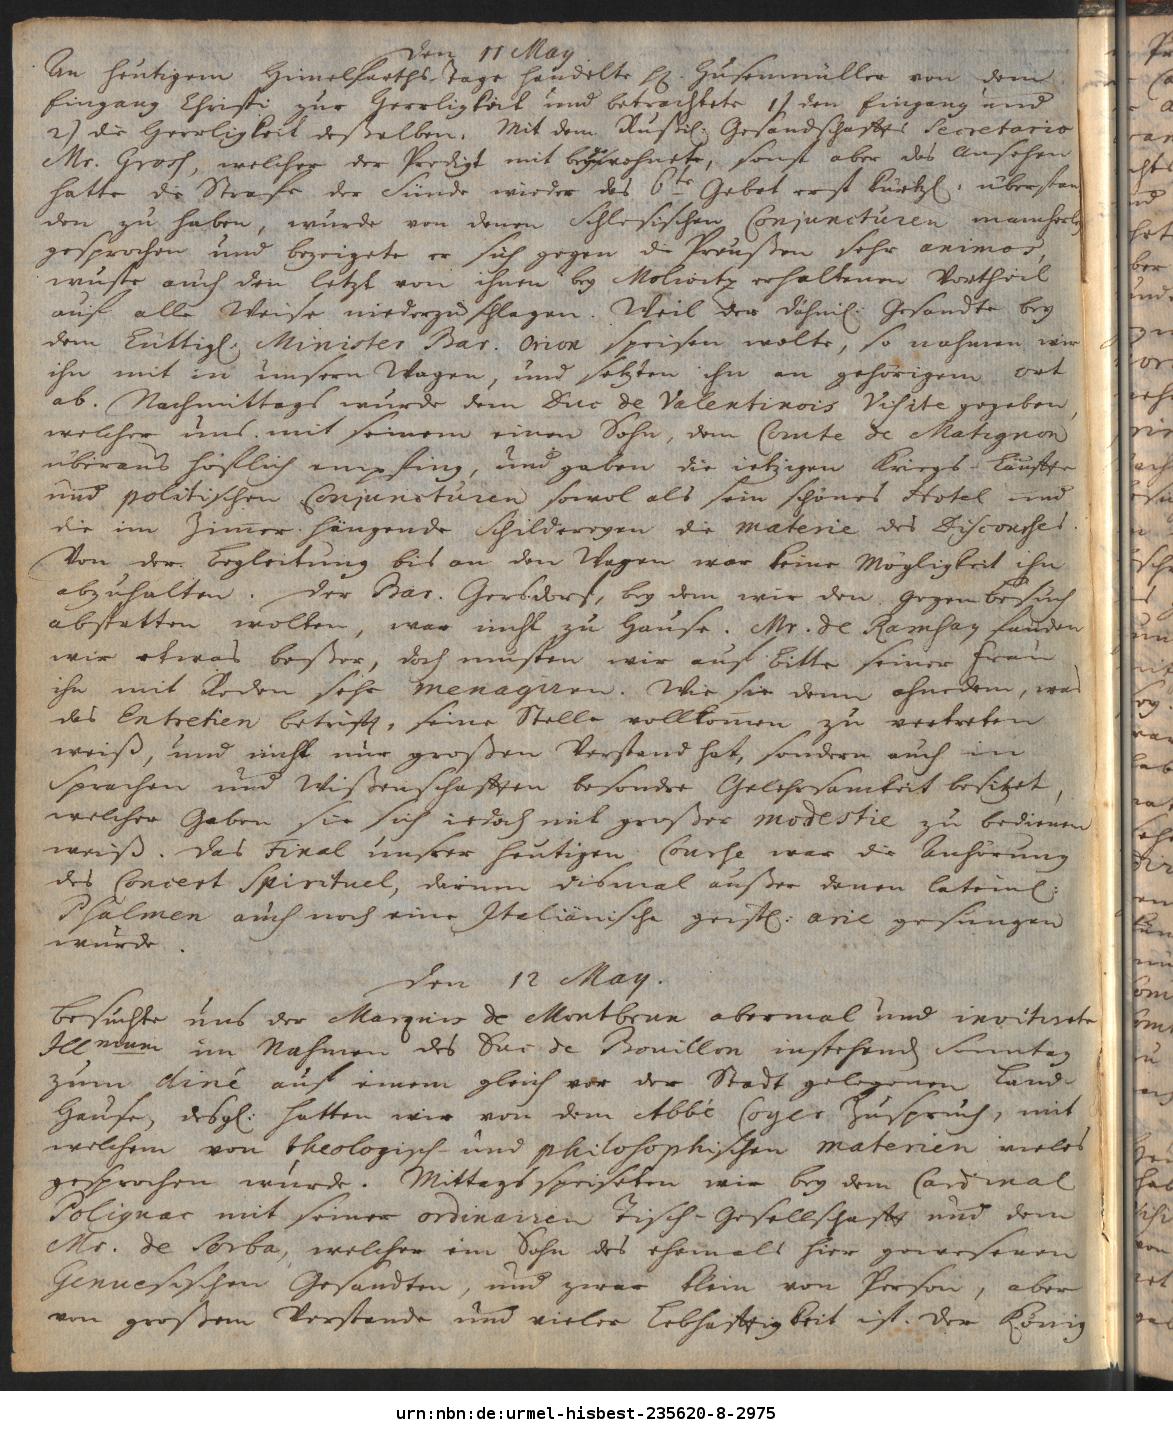 den 11 May
An heutigem Himelfarths-Tage handelte H. Husenmüller von dem
Eingang Christi zur Herrligkeit und betrachtete 1) den Eingang und
2) die Herrligkeit deßelben. Mit dem Rußil: Gesandschaffts Secretario
Mr. Gross, welcher der Predigt mit beywohnete, sonst aber das Ansehen
hatte die Strafe der Sünde wieder das 6te Gebot erst kürtzl: überstan
den zu haben, wurde von denen Schlesischen Conjuncturen mancherley
gesprochen und bezeigete er sich gegen die Preußen sehr animos,
wuste auch den letzt von ihnen bey Molwitz erhaltenen Vortheil
auf alle Weise niederzuschlagen. Weil der Dähnil: Gesandte bey
dem Lüttigl. Minister Bar. Orion speisen wolte, so nahmen wir
ihn mit in unsern Wagen, und setzten ihn an gehörigem ort
ab. Nachmittags wurde dem Duc de Valentinois Visite gegeben,
welcher uns mit seinem einen Sohn, dem Comte de Matignon
überaus höflich empfing, und gaben die ietzigen Kriegs-Läuffte
und politischen Conjuncturen sowol als sein schönes Hotel und
die im Zimer hängende Schildereyen die materie des Discourses.
Von der Begleitung bis an den Wagen war keine Mögligkeit ihn
abzuhalten. Der Bar. Gersdorf, bey dem wir den gegenbesuch
abstatten wolten, war nicht zu Hause. Mr. de Ramsay fanden
wir etwas beßer, doch musten wir auf Bitte seiner Frau
ihn mit Reden sehr menagiren. Wie sie denn ohnedem, was
das Entretien betrifft, seine Stelle vollkomen zu vertreten
weiß, und nicht nur großen Verstand hat, sondern auch in
Sprachen und Wißenschafften besondre Gelehrsamkeit besitzet,
welcher Gaben sie sich iedoch mit großer modestie zu bedienen
weiß. Das Final unsrer heutigen Course war die Anhörung
des Concert Spirituel, darinn dismal außer denen lateinl:
Psalmen auch noch eine Italiänische geistl: arie gesungen
wurde.
den 12 May.
Besuchte uns der Marquis de Montbrun abermal und invitirete
Illmum im Nahmen des Duc de Bouillon instehend Sonntag
zum diné auf einem gleich vor der Stadt gelegenen Land-
Hause, desgl: hatten wir von dem Abbé Coyer Zuspruch, mit
welchem von theologisch- und philosophischen materien vieles
gesprochen wurde. Mittags speiseten wir bey dem Cardinal
Polignac mit seiner ordinairen Tisch-Gesellschafft und dem
Mr. de Sorba, welcher ein Sohn des ehemals hier gewesenen
Genuesischen Gesandten, und zwar klein von Person, aber
von großem Verstande und vieler Lebhafftigkeit ist. Der König
urn:nbn:de:urmel-hisbest-235620-8-2975